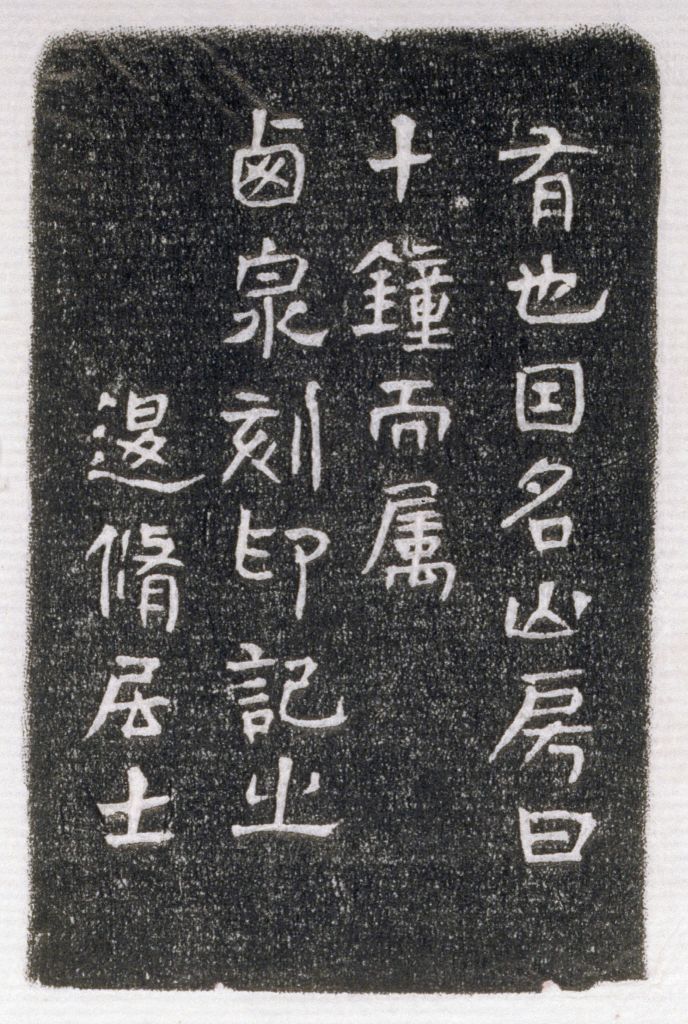 有也因名山房曰
十鐘而属
卥泉刻印記之
退脩居士